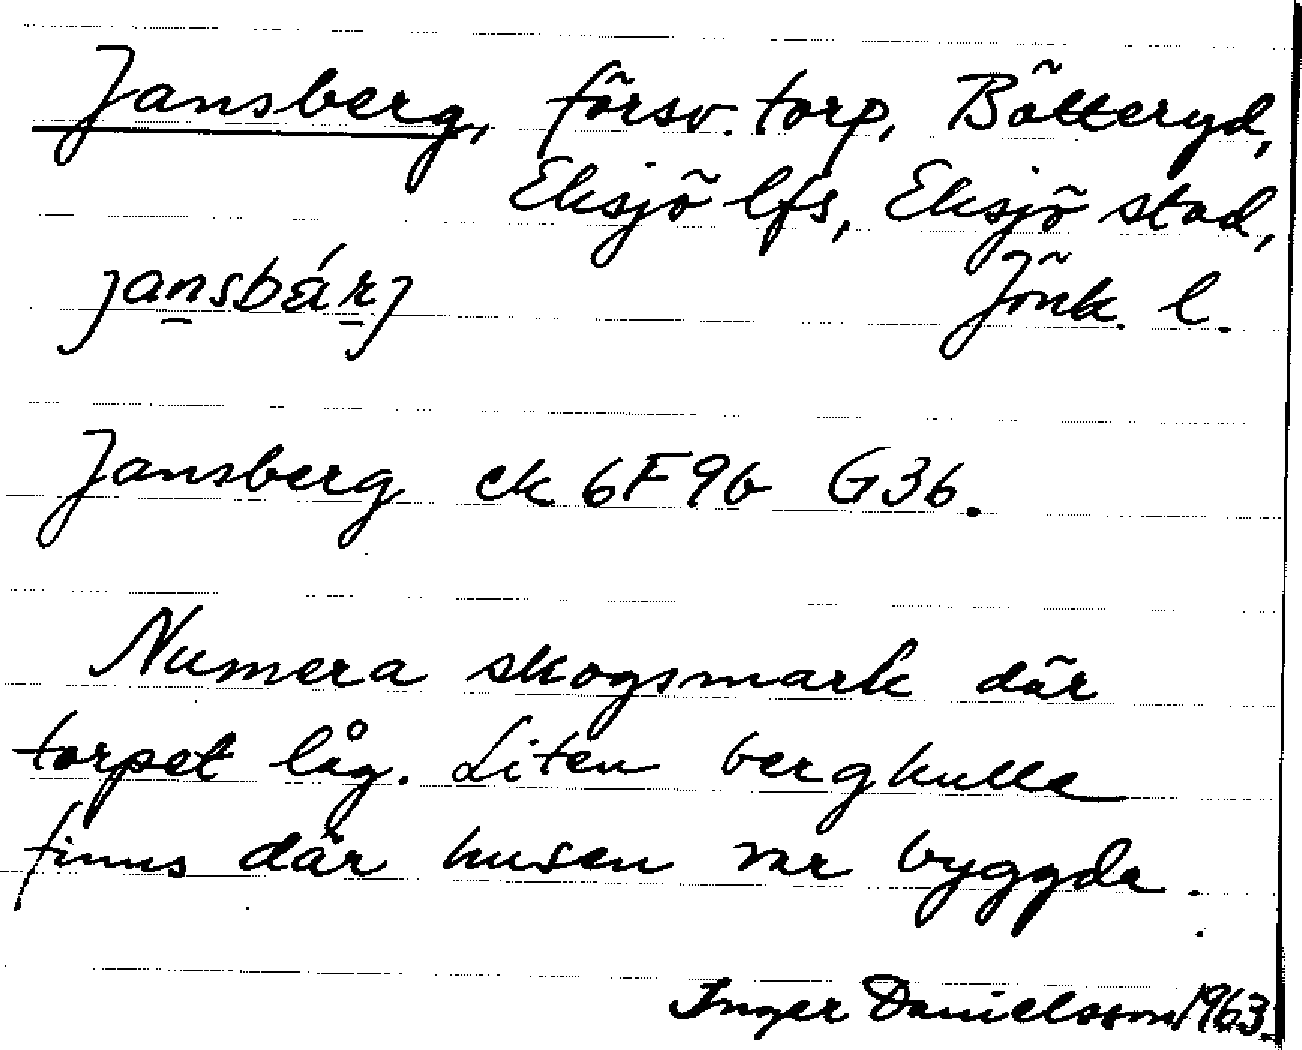 Jansberg, försv. torp, Bötteryd,
Eksjö lfs, Eksjö stad,
jansbár̲j Jönk. l.
Jansberg ek 6F9b G36.
Numera skogsmark där
torpet låg. Liten bergkulle
finns där husen var byggda.
Inger Danielsson 1963.